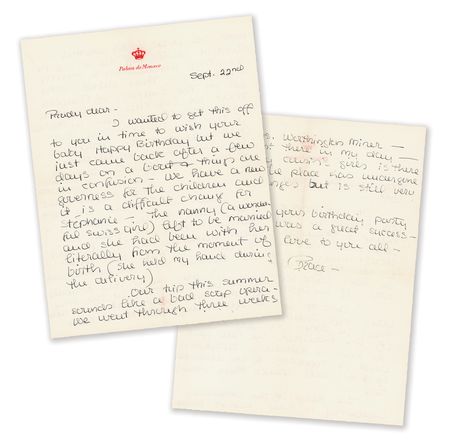 Palais de Monaco
Sept. 22nd
Prudy dear -
I wanted to get this off
to you in time to wish your
baby Happy Birthday but we
just came back after a few
days on a boat & things are
in confusion - We have a new
governess for the children and
it is a difficult change for
Stephanie - The nanny (a wonder-
ful Swiss girl) left to be married
and she had been with her
literally from the moment of
birth (she held my hand during
the delivery)
Our trip this summer
sounds like a bad soap opera -
we went through three weeks
s. Worthington Miner -
not there in my day -
cousin girls is there
he place has undergone
nges but is still very
your birthday party
was a great success -
love to you all -
Grace -